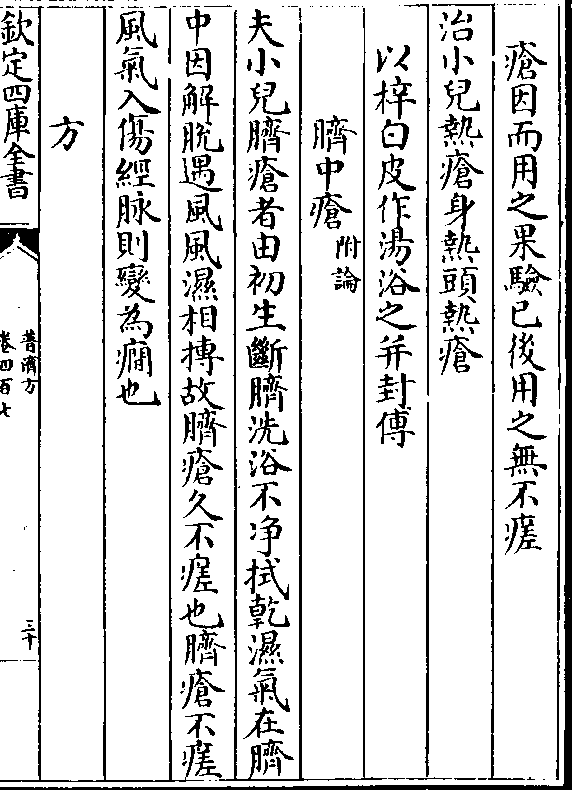 瘡因而用之果驗已後用之無不瘥
治小兒熱瘡身熱頭熱瘡
以梓白皮作湯浴之并封傅
臍中瘡附論
夫小兒臍瘡者由初生斷臍洗浴不净拭乾濕氣在臍
中因解脱遇風風濕相摶故臍瘡久不瘥也臍瘡不瘥
風氣入傷經脉則變為癎也
方
欽定四庫全書
普濟方
卷四百七
三十